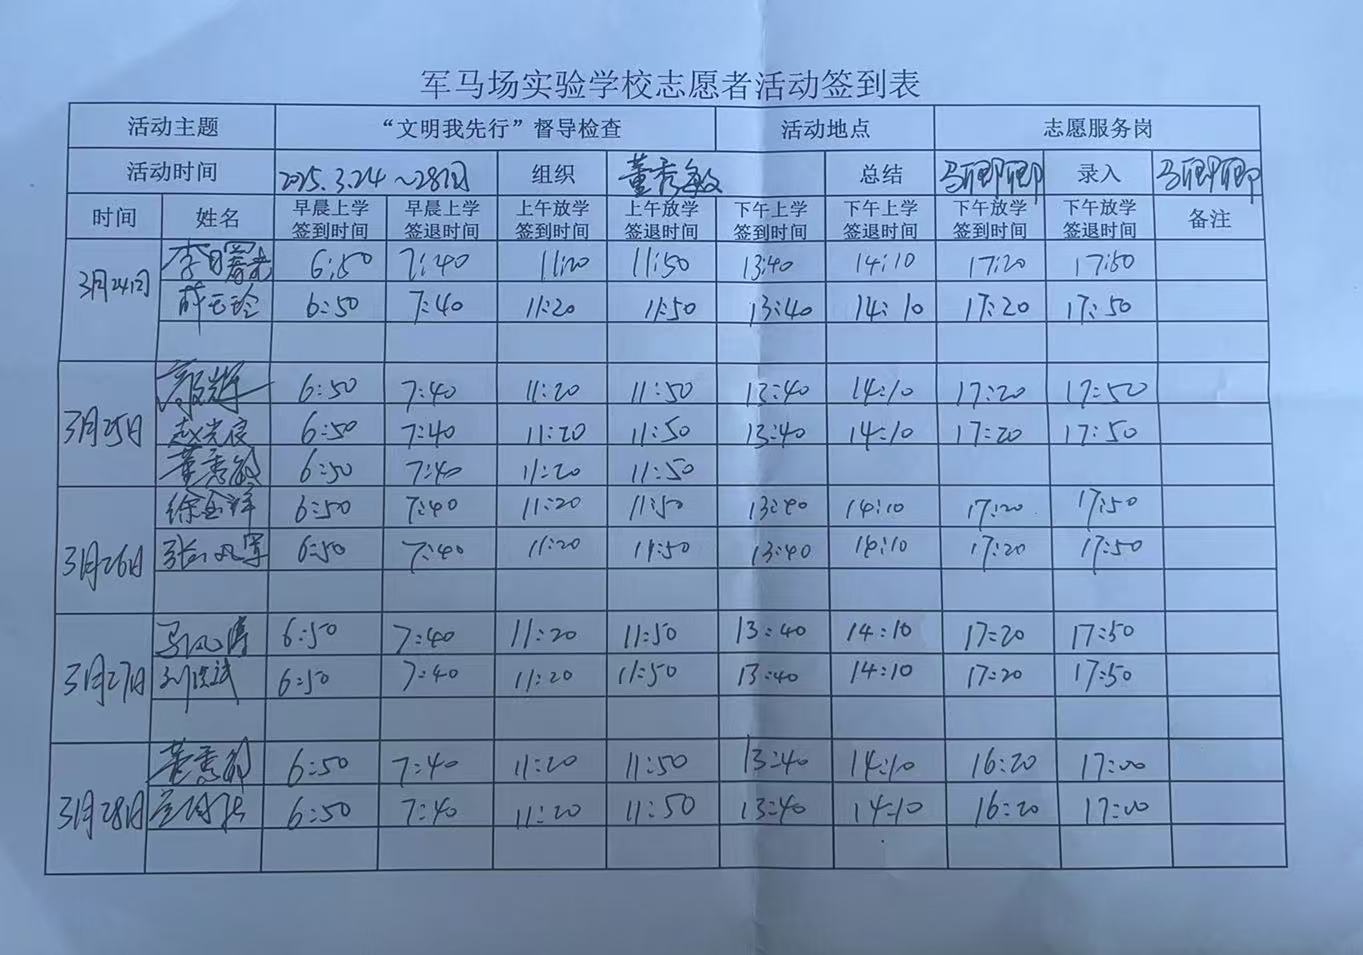 军马场实验学校志愿者活动签到表
活动主题 “文明我先行”督导检查 活动地点 志愿服务岗
活动时间 2025.3.24~28日 组织 董秀敏 总结 马卿卿 录入 马卿卿
时间 姓名 早晨上学签到时间 早晨上学签退时间 上午放学签到时间 上午放学签退时间 下午上学签到时间 下午上学签退时间 下午放学签到时间 下午放学签退时间 备注
3月24日 李 6:50 7:40 11:20 11:50 13:40 14:10 17:20 17:50
薛玉玲 6:50 7:40 11:20 11:50 13:40 14:10 17:20 17:50
3月25日 6:50 7:40 11:20 11:50 13:40 14:10 17:20 17:50
赵光良 6:50 7:40 11:20 11:50 13:40 14:10 17:20 17:50
董秀敏 6:50 7:40 11:20 11:50
3月26日 徐金祥 6:50 7:40 11:20 11:50 13:40 14:10 17:20 17:50
张 6:50 7:40 11:20 11:50 13:40 14:10 17:20 17:50
3月27日 马 6:50 7:40 11:20 11:50 13:40 14:10 17:20 17:50
刘 6:50 7:40 11:20 11:50 13:40 14:10 17:20 17:50
3月28日 董秀敏 6:50 7:40 11:20 11:50 13:40 14:10 16:20 17:00
6:50 7:40 11:20 11:50 13:40 14:10 16:20 17:00